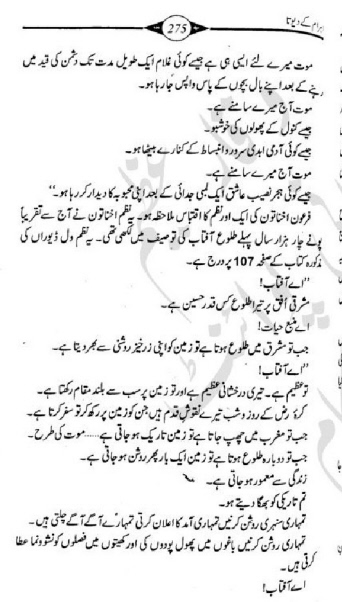 اہرام کے دیوتا
275
موت میرے لئے ایسی ہی ہے جیسے کوئی غلام ایک طویل مدت تک دشمن کی قید میں
رہنے کے بعد اپنے بال بچوں کے پاس واپس جا رہا ہو۔
موت آج میرے سامنے ہے۔
جیسے کنول کے پھولوں کی خوشبو۔
جیسے کوئی آدمی ابدی سرور و انبساط کے کنارے بیٹھا ہو۔
موت آج میرے سامنے ہے۔
جیسے کوئی ہجر نصیب عاشق ایک لمبی جدائی کے بعد اپنی محبوبہ کا دیدار کر رہا ہو۔“
فرعون اخناتون کی ایک اور نظم کا اقتباس ملاحظہ ہو۔ یہ نظم اخناتون نے آج سے تقریباً
پونے چار ہزار سال پہلے طلوع آفتاب کی توصیف میں لکھی تھی۔ یہ نظم ول ڈیوراں کی
مذکورہ کتاب کے صفحہ 107 پر درج ہے۔
”اے آفتاب!
مشرقی اُفق پر تیرا طلوع کس قدر حسین ہے۔
اے منبع حیات!
جب تو مشرق میں طلوع ہوتا ہے تو زمین کو اپنی زرخیز روشنی سے بھر دیتا ہے۔
”اے آفتاب!
تو عظیم ہے۔ تیری درخشانی عظیم ہے اور تو زمین پر سب سے بلند مقام رکھتا ہے۔
کرۂ ارض کے روز و شب تیرے نقوشِ قدم ہیں جن کو زمین پر رکھ کر تو سفر کرتا ہے۔
جب تو مغرب میں چھپ جاتا ہے تو زمین تاریک ہو جاتی ہے......موت کی طرح۔
جب تو دوبارہ طلوع ہوتا ہے تو زمین ایک بار پھر روشن ہو جاتی ہے۔
زندگی سے معمور ہو جاتی ہے۔
تم تاریکی کو بھگا دیتے ہو۔
تمہاری سنہری روشن کرنیں تمہاری آمد کا اعلان کرتی تمہارے آگے آگے چلتی ہیں۔
تمہاری روشن کرنیں باغوں میں پھول پودوں کی اور کھیتوں میں فصلوں کو نشوونما عطا
کرتی ہیں۔
اے آفتاب!